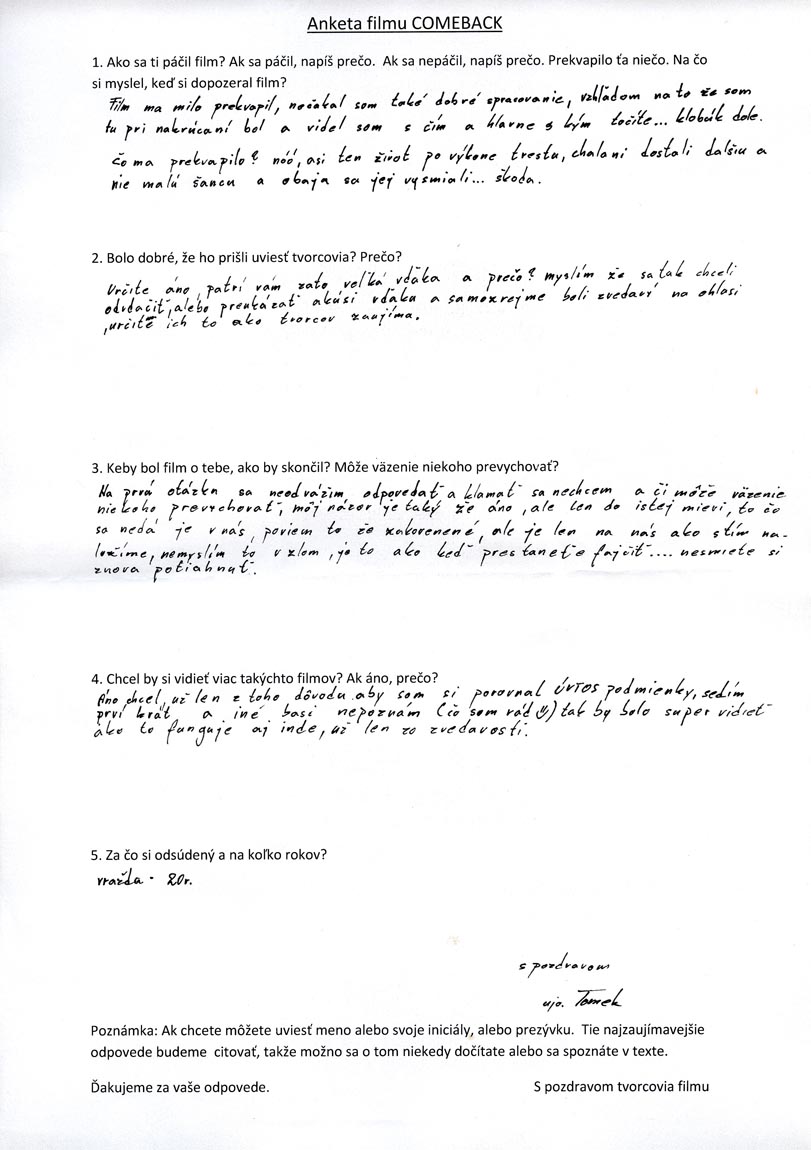 Anketa filmu COMEBACK
1. Ako sa ti páčil film? Ak sa páčil, napíš prečo.  Ak sa nepáčil, napíš prečo. Prekvapilo ťa niečo. Na čo
si myslel, keď si dopozeral film?
Film ma milo prekvapil, nečakal som také dobré spracovanie, vzhľadom na to že som
tu pri nakrúcaní bol a videl som s čím a hlavne s kým točíte... klobúk dole.
čo ma prekvapilo? nóó, asi ten život po výkone trestu, chalani dostali dalšiu a
nie malú šancu a obaja sa jej vysmiali... škoda.
2. Bolo dobré, že ho prišli uviesť tvorcovia? Prečo?
Určite áno, patrí vám zato veľká vďaka a prečo? myslím že sa tak chceli
odvďačiť, alebo preukázať akúsi vďaku a samozrejme boli zvedaví na ohlasi
, určite ich to ako tvorcov zaujíma.
3. Keby bol film o tebe, ako by skončil? Môže väzenie niekoho prevychovať?
Na prvú otázku sa neodvážim odpovedať a klamať sa nechcem a či môže väzenie
niekoho prevychovať, môj názor je taký že áno, ale len do istej mieri, to čo
sa nedá je v nás, poviem to že zakorenené, ale je len na nás ako stím na-
ložíme, nemyslím to v zlom, je to ako keď prestaneťe fajčiť.... nesmiete si
znova potiahnuť.
4. Chcel by si vidieť viac takýchto filmov? Ak áno, prečo?
Áno chcel, už len z toho dôvodu aby som si porovnal ÚVTOS podmienky, sedím
prví krát a iné basi nepoznám (čo som rád) tak by bolo super vidieť
ako to funguje aj inde, už len zo zvedavosti.
5. Za čo si odsúdený a na koľko rokov?
vražda - 20r.
s pozdravom
ujo. Tomek
Poznámka: Ak chcete môžete uviesť meno alebo svoje iniciály, alebo prezývku.  Tie najzaujímavejšie
odpovede budeme  citovať, takže možno sa o tom niekedy dočítate alebo sa spoznáte v texte.
Ďakujeme za vaše odpovede. S pozdravom tvorcovia filmu